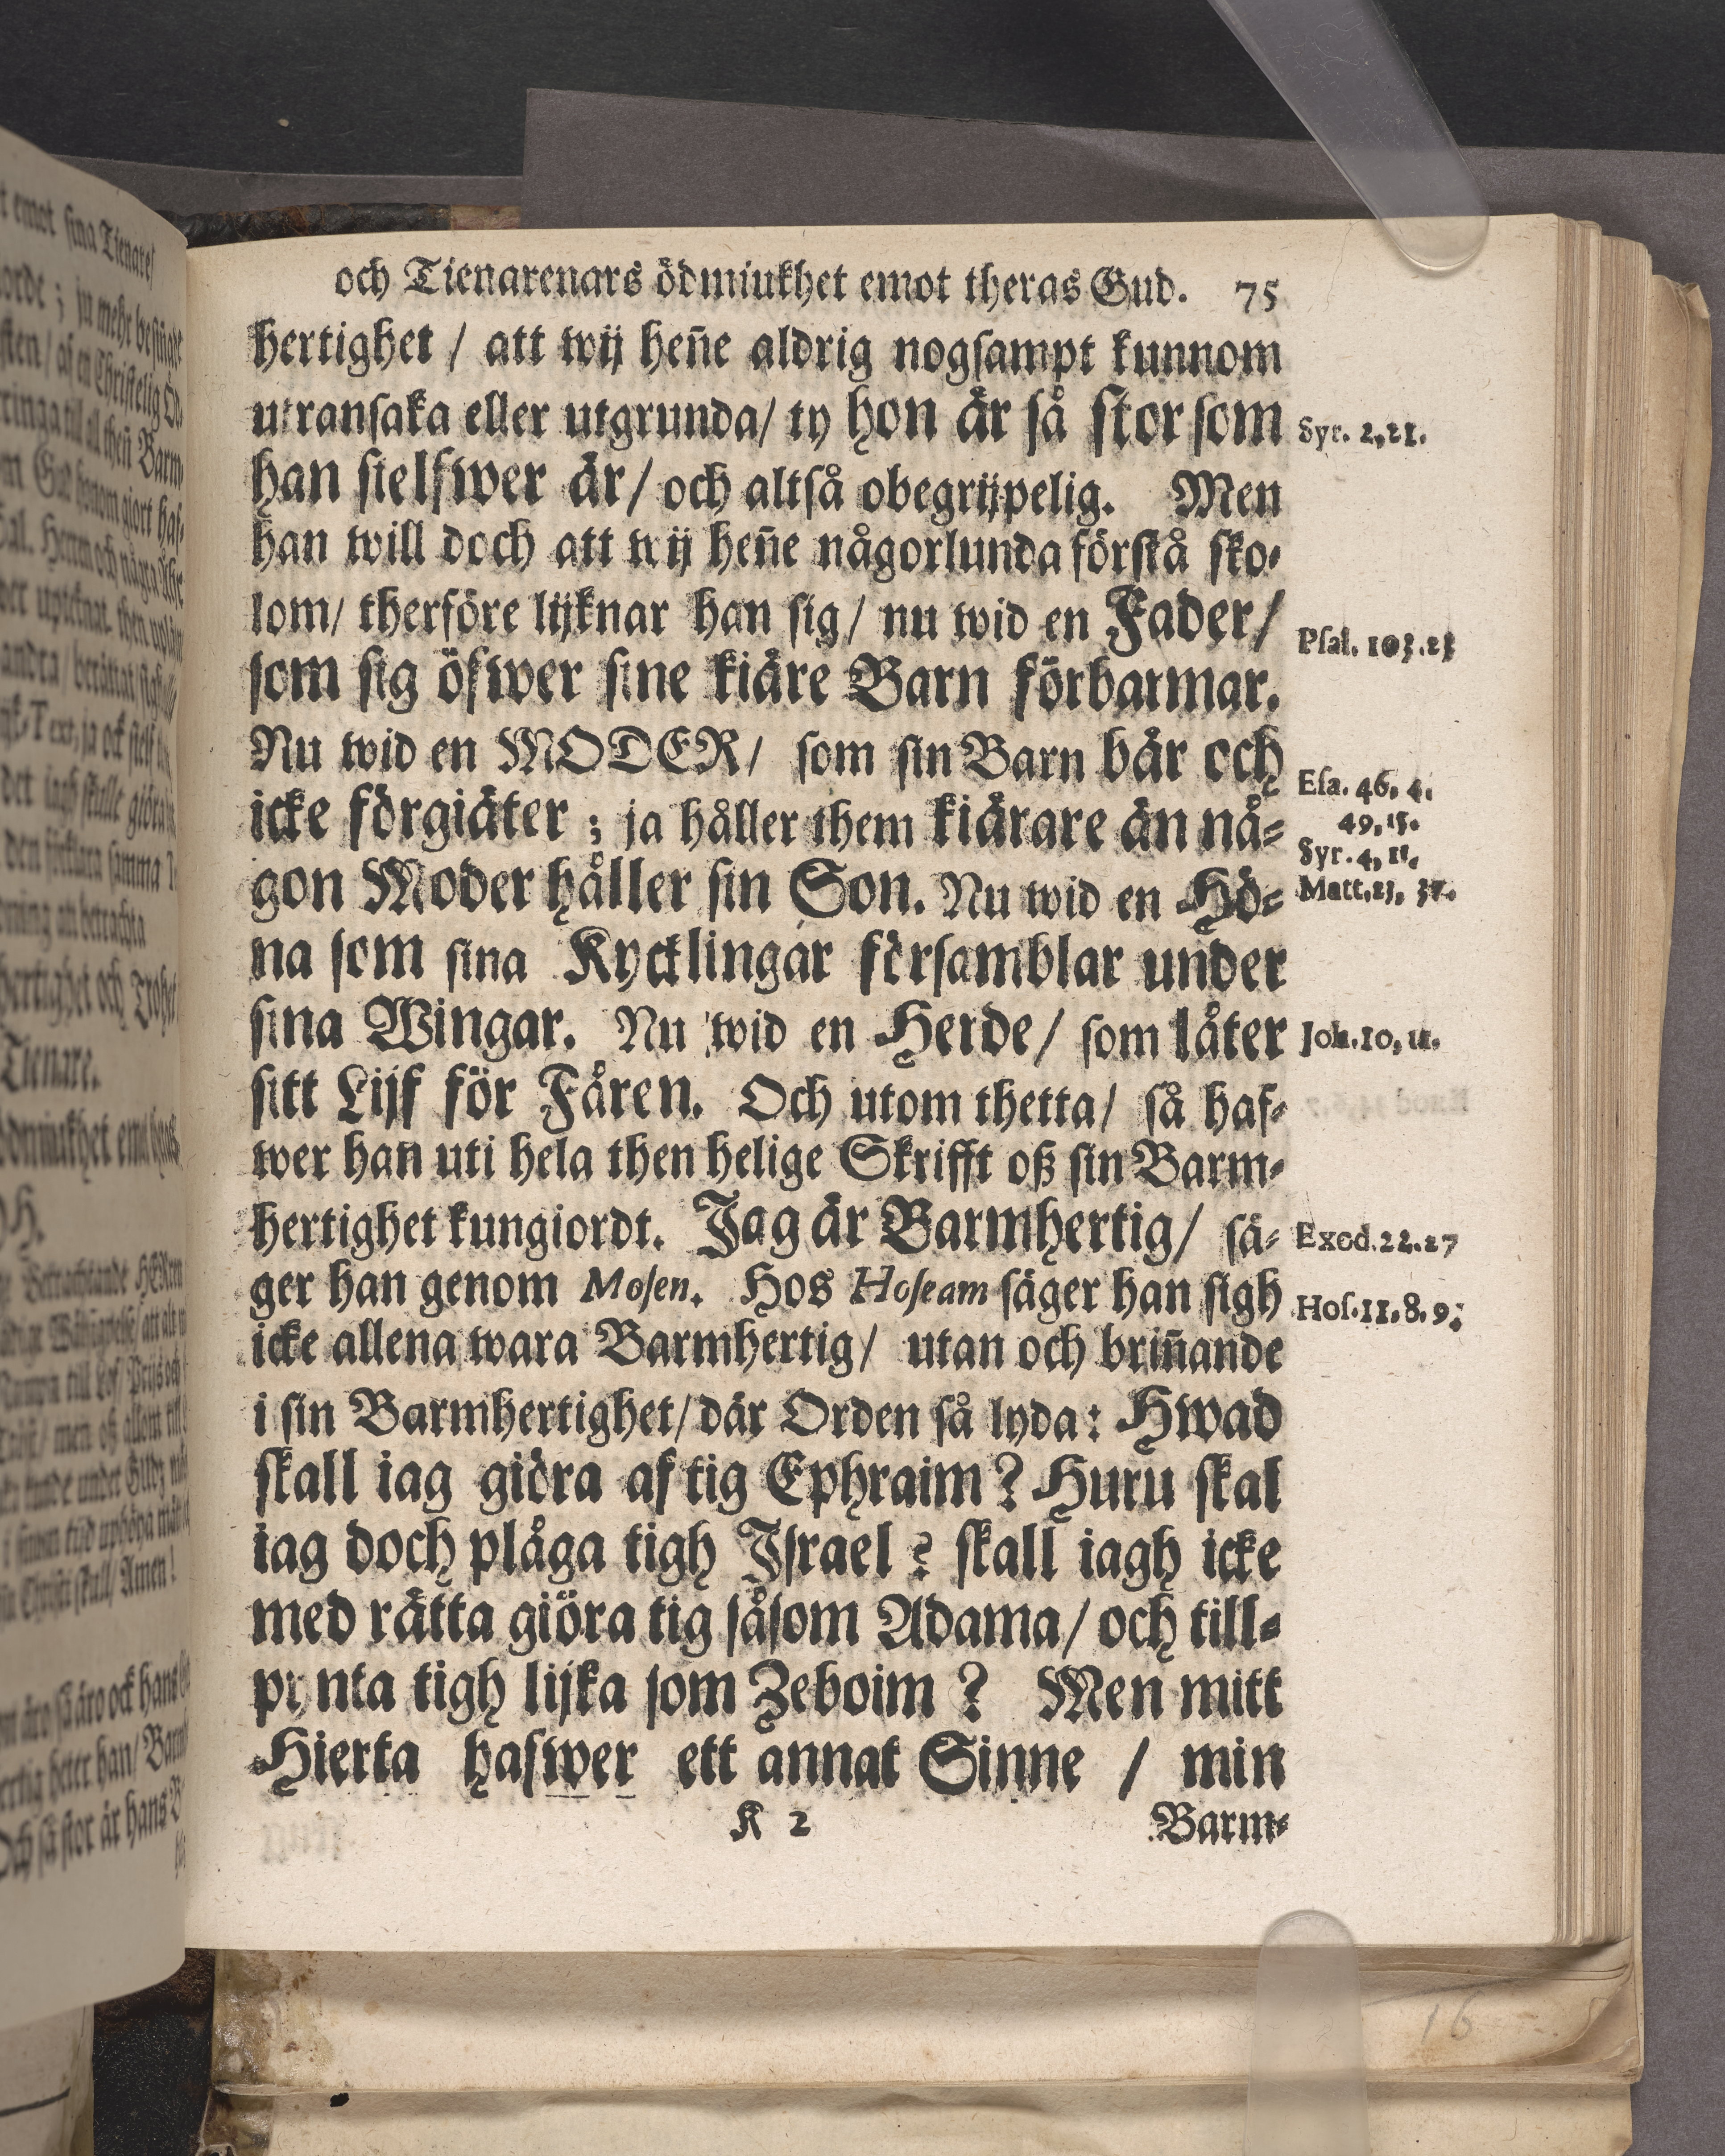 och Tienarenars ödmiukhet emot theras Gud. 75
hertighet / att wij heñe aldrig nogsampt kunnom
utransaka eller utgrunda/ ty hon är så stor som
Syr. 2,21.
han sielfwer är/ och altså obegrijpelig. Men
han will doch att wij heñe någorlunda förstå sko-
lom/ therföre lijknar han sig/ nu wid en Fader/
Psal. 103.13
som sig öfwer sine kiäre Barn förbarmar.
Nu wid en MODER/ som sin Barn bär och
Esa. 46, 4.
icke förgiäter ; ja håller them kiärare än nå-
49,15.
Syr. 4, 11.
gon Moder håller sin Son. Nu wid en Hö-
Matt.23, 37.
na som sina Kycklingar församblar under
sina Wingar. Nu wid en Herde/ som låter
Joh.10, 11.
sitt Lijf för Fåren. Och utom thetta/ så haf-
wer han uti hela then helige Skrifft oß sin Barm-
hertighet kungiordt. Jag är Barmhertig/ sä-
Exod.22.27
ger han genom Mosen. Hos Hoseam säger han sigh
Hos.11,8.9;
icke allena wara Barmhertig/ utan och briñande
i sin Barmhertighet/ där Orden så lyda: Hwad
skall iag giöra af tig Ephraim? Huru skal
iag doch plåga tigh Israel ? skall iagh icke
med rätta giöra tig såsom Adama/ och till-
pynta tigh lijka som Zeboim ? Men mitt
Hierta hafwer ett annat Sinne / min
K 2 Barm-
16